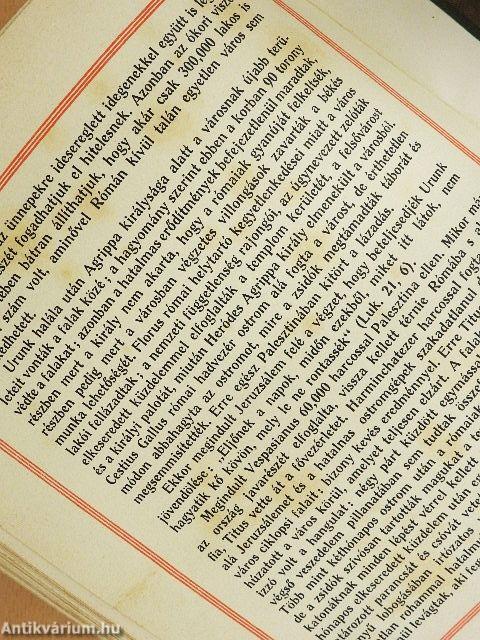 az ünnepekre idesereglett idegenekkel együtt is
részét fogadhatjuk el hitelesnek. Azonban az ókori
bátran állíthatjuk, hogy akár csak 300,000 lakos is
szám volt, aminővel Rómán kívül talán egyetlen város sem
Urunk halála után Agrippa királysága alatt a városnak újabb terü-
letét vonták a falak közé; a hagyomány szerint ebben a korban 90 torony
védte a falakat; azonban a hatalmas erődítmények befejezetlenül maradtak,
részben mert a király nem akarta, hogy a rómaiak gyanúját felkeltsék,
részben pedig mert a városban végzetes villongások zavarták a békés
munka lehetőségét. Florus római helytartó kegyetlenkedései miatt a város
lakói fellázadtak, a nemzeti függetlenség rajongói, az úgynevezett zelóták
elkeseredett küzdelemmel elfoglalták a templom kerületét, a felsővárost
és a királyi palotát, miután Heródes Agrippa király elmenekült a városból.
Cestius Gallus római hadvezér ostrom alá fogta a várost, de érthetetlen
módon abbahagyta az ostromot, mire a zsidók megtámadták táborát és
megsemmisítették. Erre egész Palesztinában kitört a lázadás.
Ekkor megindult Jeruzsálem felé a végzet, hogy beteljesedjék Urunk
jövendölése: „Eljőnek a napok, midőn ezekből, amiket itt látok, nem
hagyatik kő kövön, mely le ne rontassék" (Luk. 21, 6).
Megindult Vespasianus 60,000 harcossal Palesztina ellen. Mikor már
az ország javarészét elfoglalta, vissza kellett térnie Rómába s
fia, Titus vette át a fővezérletet. Harmincháromezer harcossal fogta
alá Jeruzsálemet és a hatalmas ostromgépek szakadatlanul
város ciklopsi falait; bizony kevés eredménnyel. Erre Titus
húzatott a város körül, amelyet teljesen elzárt. A falak
izzó volt a hangulat; négy párt küzdött egymással
végső veszedelem pillanatában sem tudtak
Több mint kéthónapos ostrom után a rómaiak
de a zsidók szívósan tartották magukat a
katonáknak minden lépést vérrel kellett
hónapos elkeseredett küzdelem után
parancsát és csóvát vetett
lobogásában irtózatos
rohammal hatalmukba
levágtak, aki
Antikvárium.hu